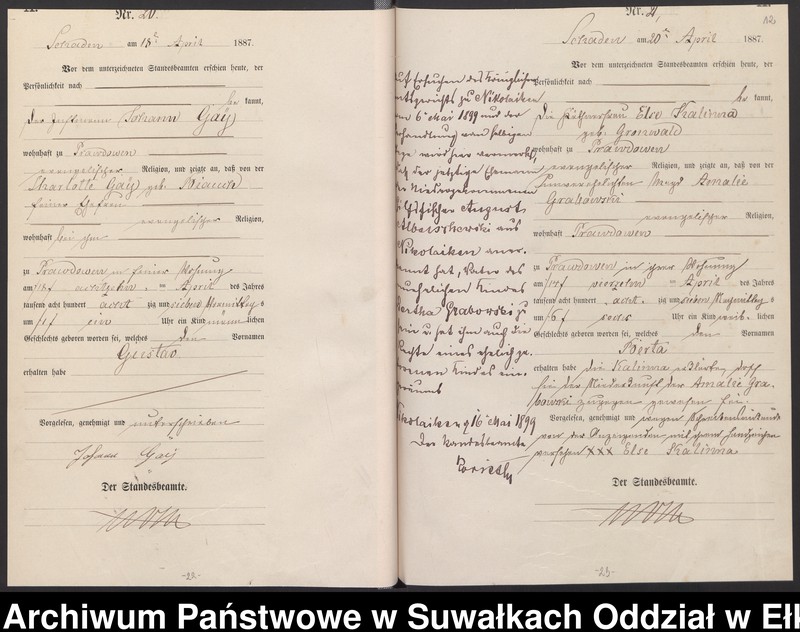 Nr. 20.
am 18ten April 1887.
Vor dem unterzeneichneten Standesbeamten erschien heute, der
Persönlichkeit nach
be kannt,
der Johann Gaÿ
wohnhaft zu Prawdowen
evangelischer Religion, und zeigte an, daß von der
Charlotte Gaÿ geb.
seiner Ehefrau
evangelischer Religion,
wohnhaft bei ihm
zu Prawdowen in seiner Wohnung
am April des Jahres
tausend acht hundert acht zig und sieben Vormittags
um ein Uhr ein Kind männ lichen
Geschlechts geboren worden sei, welches den Vornamen
Gustav
erhalten habe
Vorgelesen, genehmigt und unterschrieben
Johann Gaÿ
Der Standesbeamte.
-22-
Nr. 21.
12
am 20ten April 1887.
Vor dem unterzeichneten Standesbeamten erschien heute, der
Persönlichkeit nach
be kannt,
die Käthnerfrau Else Kalinna
geb. Gronwald
wohnhaft zu Prawdowen
evangelischer Religion, und zeigte an, daß von der
unverehelichten Magd Amalie
Grabowski
evangelischer Religion,
wohnhaft Prawdowen
zu Prawdowen in ihrer Wohnung
am vierzehn April des Jahres
tausend acht hundert acht zig und sieben
um sechs Uhr ein Kind weib lichen
Geschlechts geboren worden sei, welches den Vornamen
Berta
erhalten habe die Kalinna erklärte, daß
sie bei der Niederkunft der Amalie Gra-
bowski zugegen gewesen sei.
Vorgelesen, genehmigt und wegen
von der Anzeigenden mit ihrem Handzeichen
versehen XXX Else Kalinna
Der Standesbeamte.
-23-
Auf Ersuchen des Königlichen
Amtsgerichts zu Nikolaiken
vom 6 Mai 1899 und der
Verhandlung vom selbigen
Tage wird hier vermerkt,
daß der jetzige Ehemann
der
August
aus
Nikolaiken aner-
kannt hat, Vater des
unehelichen Kindes
Bertha Grabowski zu
sein u. hat ihm auch die
Rechte eines ehelich ge-
borenen Kindes ein-
geräumt
Nikolaiken, 16 Mai 1899
Der Standesbeamte
Archiwum Państwowe w Suwałkach Oddział w Ełk